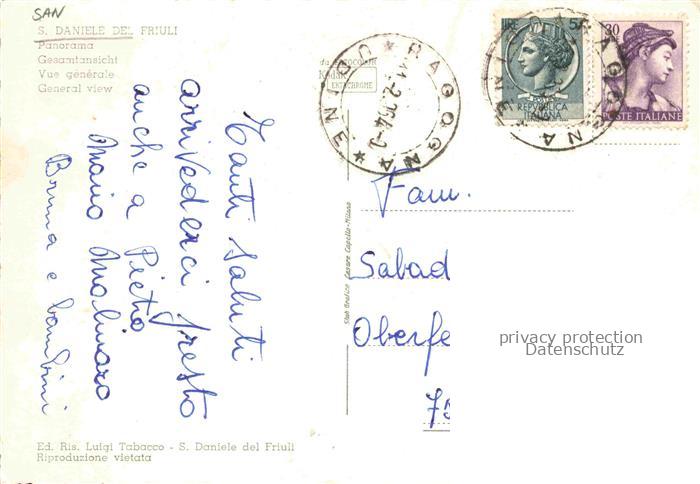 SAN
S. DANIELE DEL FRIULI
Panorama
Gesamtansicht
Vue générale
General view
da EKTACOLOR
Kodak
EKTACHROME
RAGOGNA
* UDINE *
LIRE 5
REPVBBLICA
ITALIANA
30
POSTE ITALIANE
RAGOGNA
Tanti saluti
arrivederci presto
anche a Pietro
Mario Molinaro
Bruna e bambini
Fam.
Sabad
Oberfe
privacy protection
Datenschutz
Stab Grafico Cesare Capello-Milano
Ed. Ris. Luigi Tabacco - S. Daniele del Friuli
Riproduzione vietata